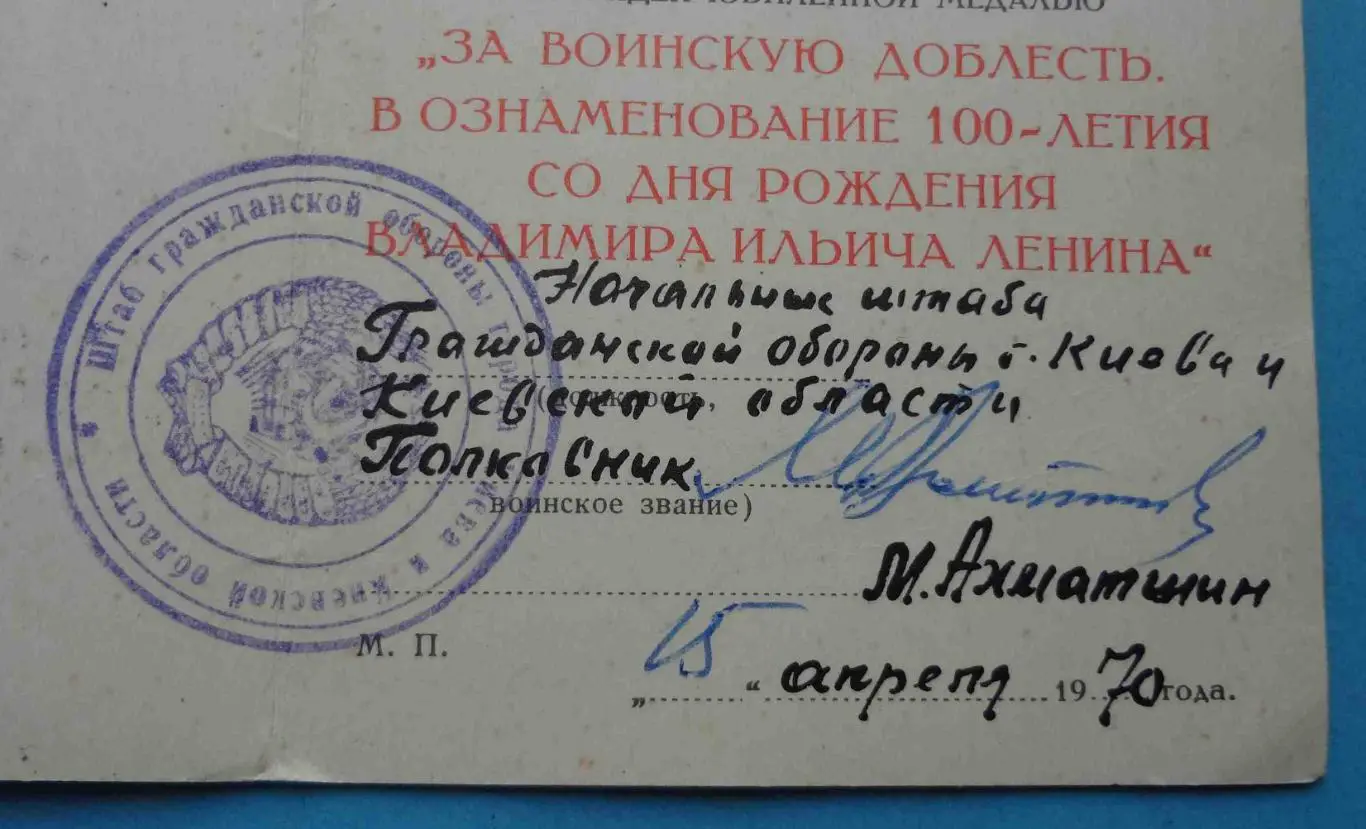 ЮБИЛЕЙНОЙ МЕДАЛЬЮ
„ЗА ВОИНСКУЮ ДОБЛЕСТЬ.
В ОЗНАМЕНОВАНИЕ 100-ЛЕТИЯ
СО ДНЯ РОЖДЕНИЯ
ВЛАДИМИРА ИЛЬИЧА ЛЕНИНА“
Начальник штаба
Гражданской обороны г. Киева и
Киевской области
Полковник
воинское звание)
М. Ахматшин
М. П.
„15“ апреля 1970 года.
Штаб гражданской обороны города Киева и Киевской области *